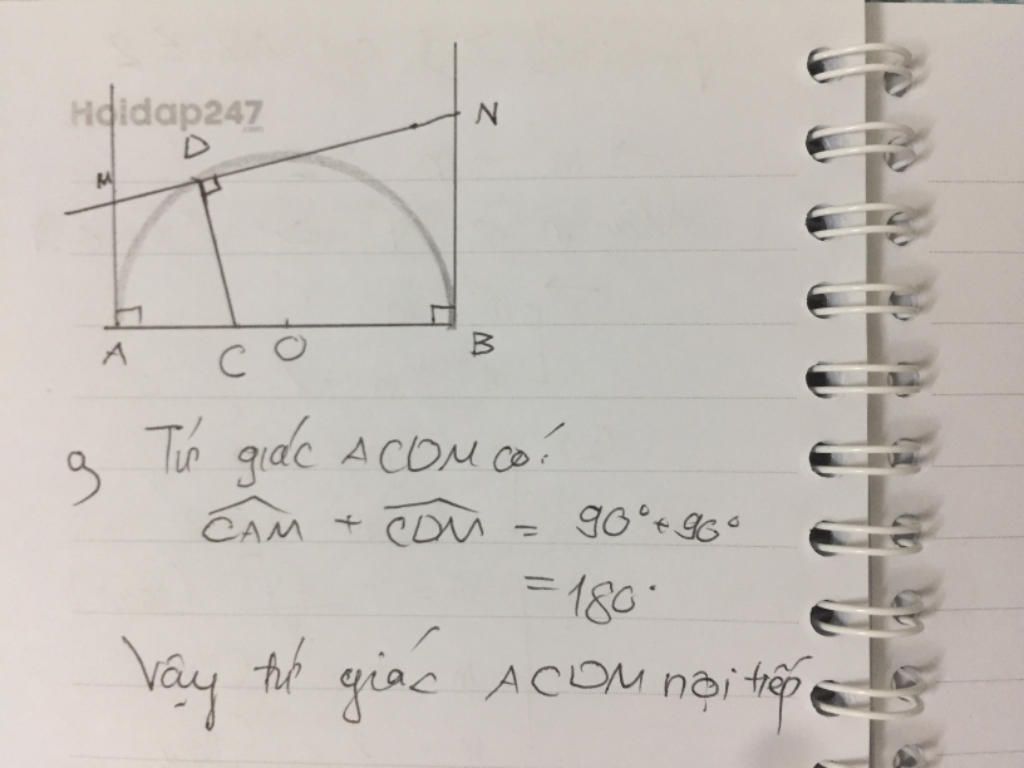 Hoidap247
N
D
M
A
C
O
B
a
Tứ giác ACDM có:
CAM + CDM = 90° + 90°
= 180°
Vậy tứ giác ACDM nội tiếp